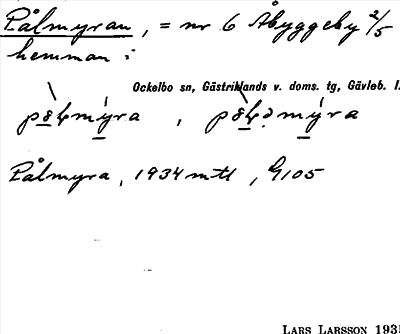 Pålmyran, = nr 6 Åbyggeby 2/5
hemman:
Ockelbo sn, Gästriklands v. doms. tg, Gävleb. l.
Pålmyra, 1934 mtl, G105
LARS LARSSON 193